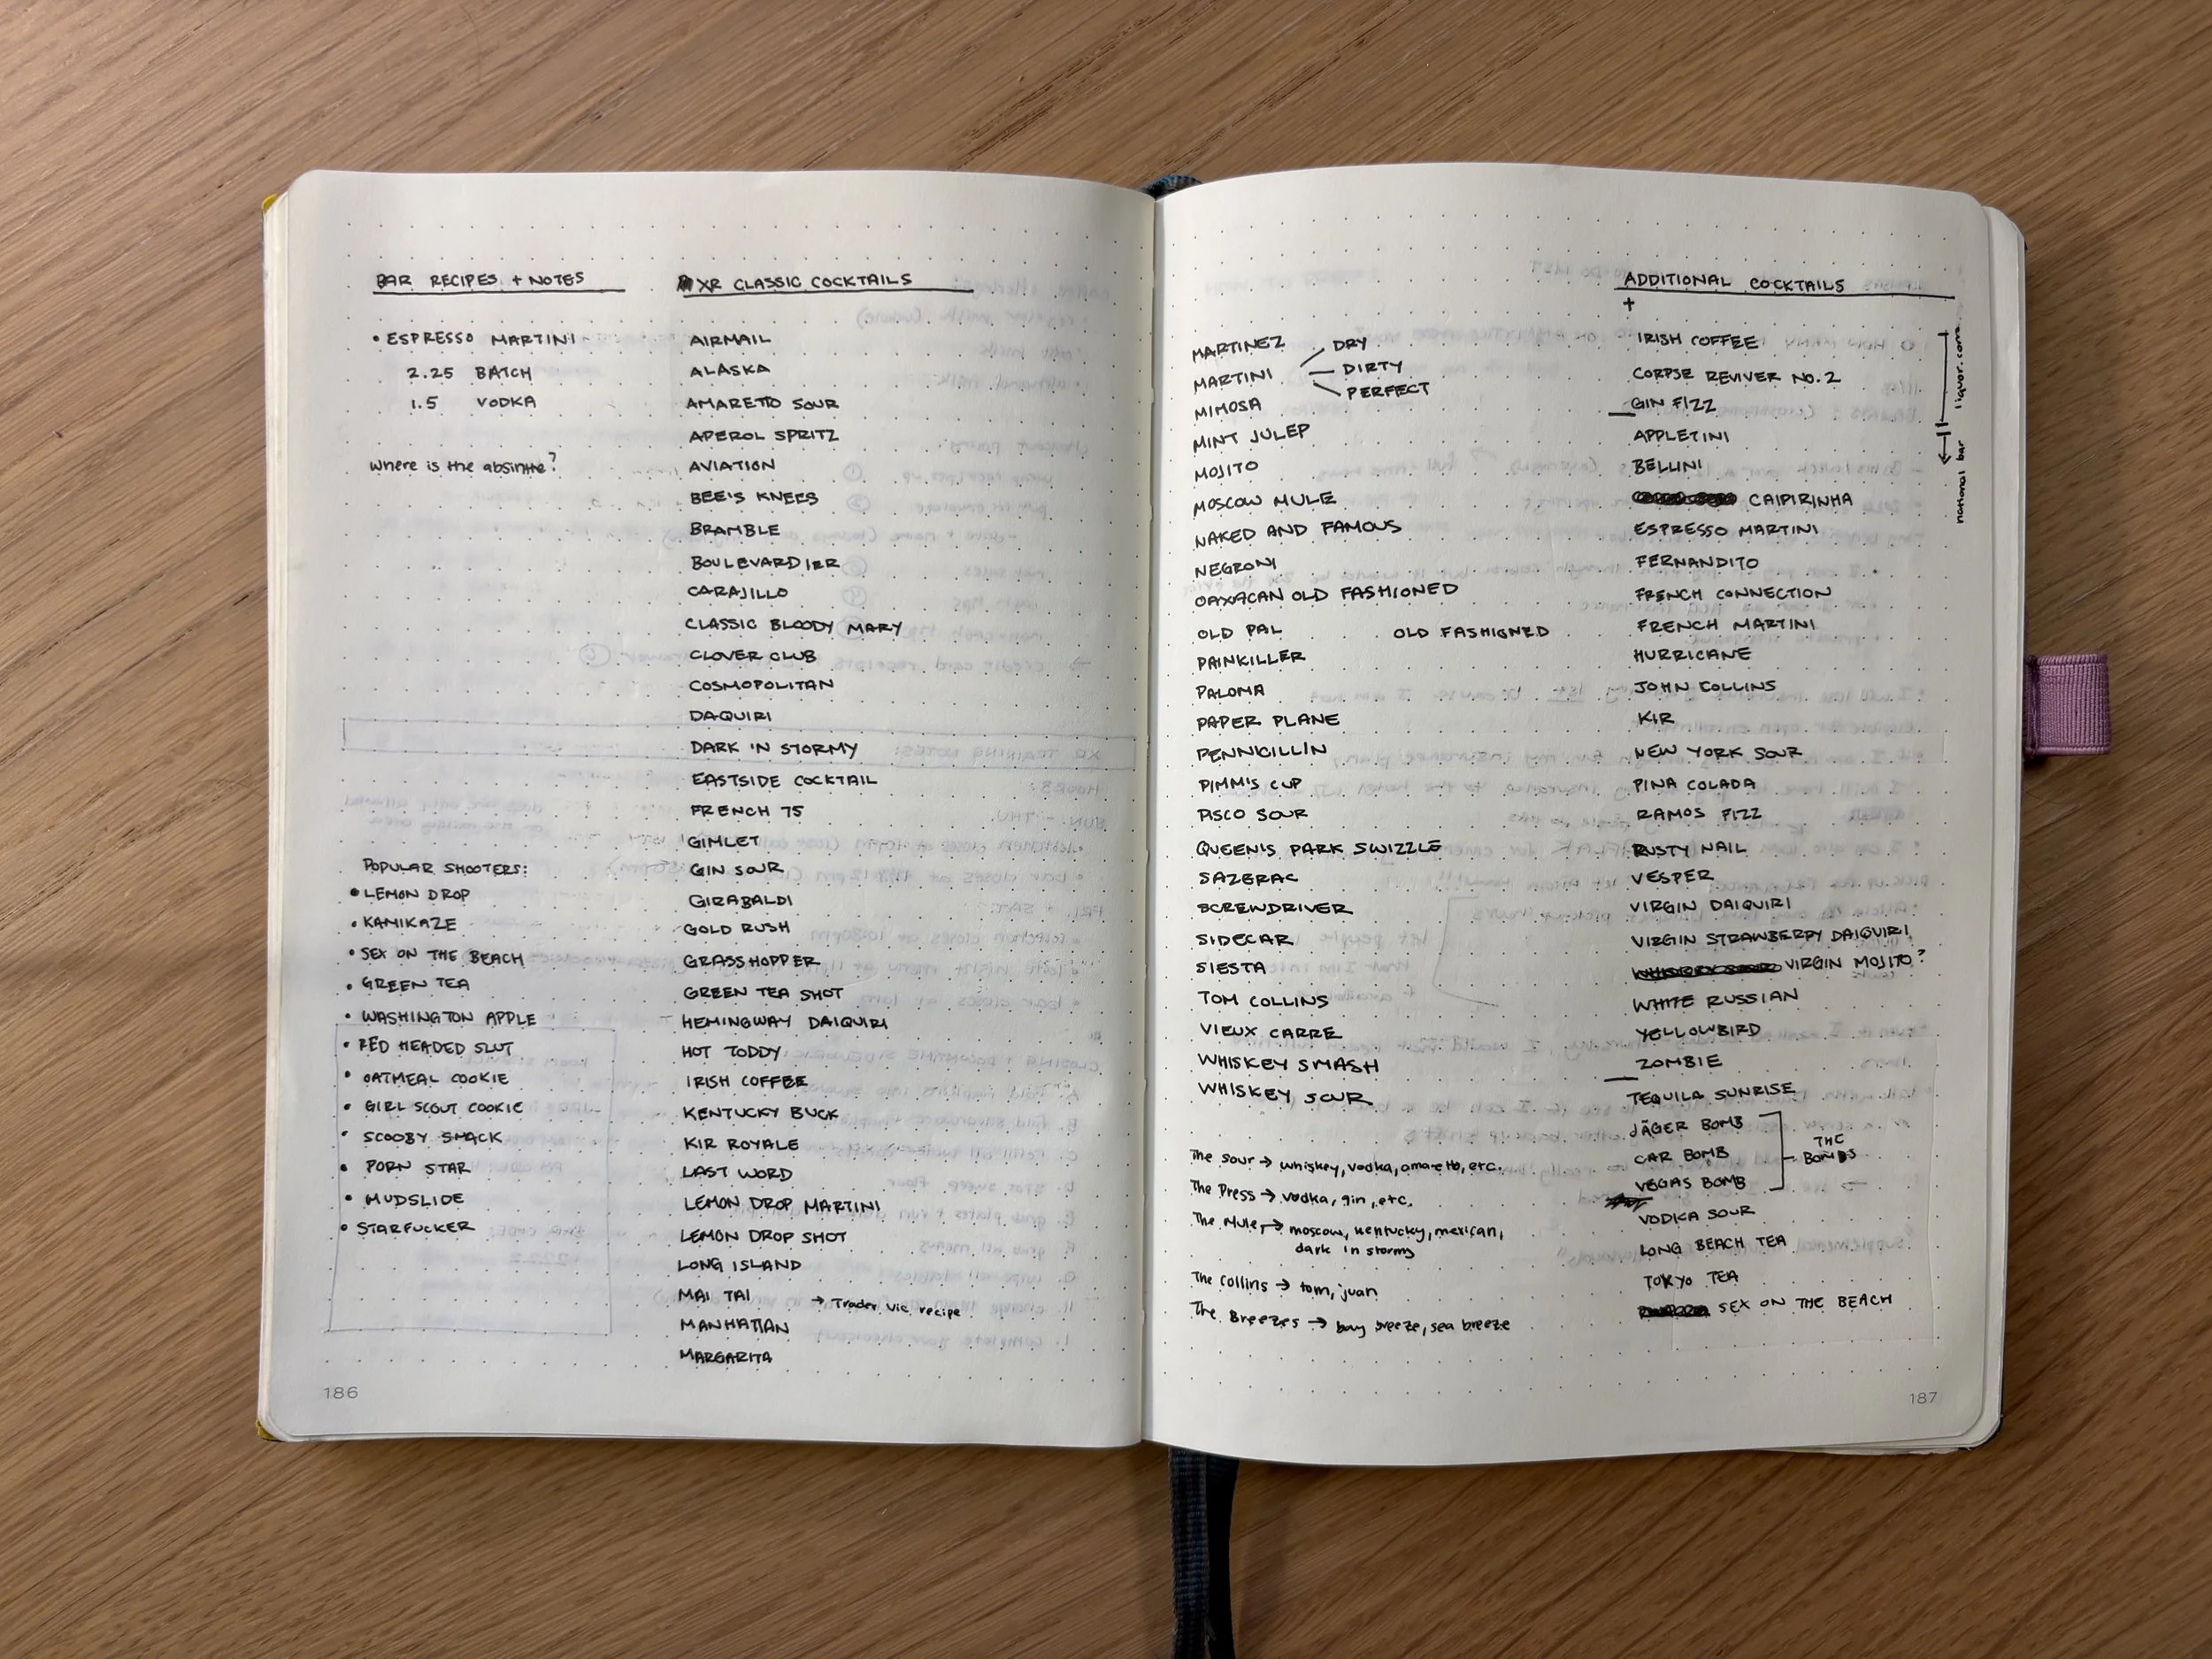 BAR RECIPES + NOTES
• ESPRESSO MARTINI
2.25 BATCH
1.5 VODKA
where is the absinthe?
POPULAR SHOOTERS:
• LEMON DROP
• KAMIKAZE
• SEX ON THE BEACH
• GREEN TEA
• WASHINGTON APPLE
• RED HEADED SLUT
• OATMEAL COOKIE
• GIRL SCOUT COOKIE
• SCOOBY SNACK
• PORN STAR
• MUDSLIDE
• STARFUCKER
XR CLASSIC COCKTAILS
AIRMAIL
ALASKA
AMARETTO SOUR
APEROL SPRITZ
AVIATION
BEE'S KNEES
BRAMBLE
BOULEVARDIER
CARAJILLO
CLASSIC BLOODY MARY
CLOVER CLUB
COSMOPOLITAN
DAQUIRI
DARK 'N STORMY
EASTSIDE COCKTAIL
FRENCH 75
GIMLET
GIN SOUR
GIRABALDI
GOLD RUSH
GRASSHOPPER
GREEN TEA SHOT
HEMINGWAY DAIQUIRI
HOT TODDY
IRISH COFFEE
KENTUCKY BUCK
KIR ROYALE
LAST WORD
LEMON DROP MARTINI
LEMON DROP SHOT
LONG ISLAND
MAI TAI → Trader Vic recipe
MANHATTAN
MARGARITA
186
MARTINEZ
MARTINI
DRY
DIRTY
PERFECT
MIMOSA
MINT JULEP
MOJITO
MOSCOW MULE
NAKED AND FAMOUS
NEGRONI
OAXACAN OLD FASHIONED
OLD PAL OLD FASHIONED
PAINKILLER
PALOMA
PAPER PLANE
PENNICILLIN
PIMM'S CUP
PISCO SOUR
QUEEN'S PARK SWIZZLE
SAZERAC
SCREWDRIVER
SIDECAR
SIESTA
TOM COLLINS
VIEUX CARRE
WHISKEY SMASH
WHISKEY SOUR
The Sour → whiskey, vodka, amaretto, etc.
The Press → vodka, gin, etc.
The Mule → moscow, kentucky, mexican,
dark in stormy
The Collins → tom, juan
The Breezes → bay breeze, sea breeze
ADDITIONAL COCKTAILS
+
IRISH COFFEE
CORPSE REVIVER NO. 2
GIN FIZZ
APPLETINI
BELLINI
CAIPIRINHA
ESPRESSO MARTINI
FERNANDITO
FRENCH CONNECTION
FRENCH MARTINI
HURRICANE
JOHN COLLINS
KIR
NEW YORK SOUR
PINA COLADA
RAMOS FIZZ
RUSTY NAIL
VESPER
VIRGIN DAIQUIRI
VIRGIN STRAWBERRY DAIQUIRI
VIRGIN MOJITO?
WHITE RUSSIAN
YELLOWBIRD
ZOMBIE
TEQUILA SUNRISE
JÄGER BOMB
CAR BOMB
VEGAS BOMB
THE
BOMBS
VODKA SOUR
LONG BEACH TEA
TOKYO TEA
SEX ON THE BEACH
liquor.com
national bar
187